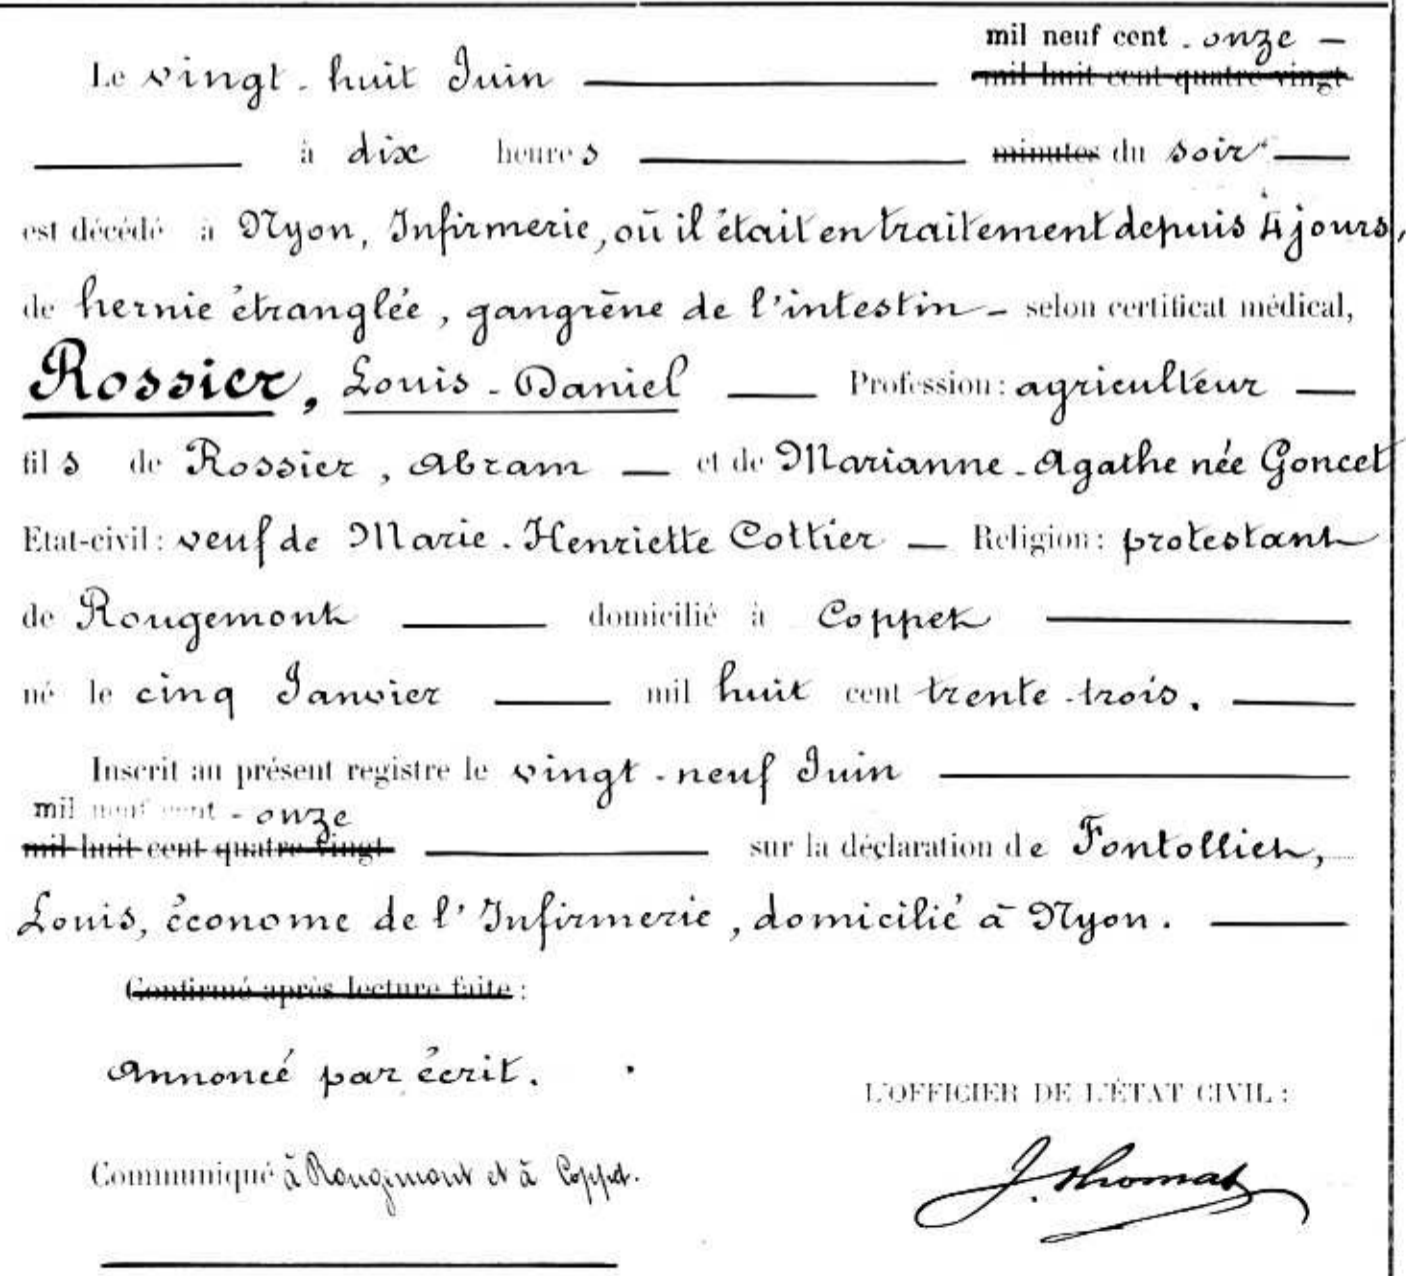 mil neuf cent - onze -
Le vingt-huit Juin mil huit cent quatre vingt
à dix heures minutes du soir
est décédé à Nyon, Infirmerie, où il était en traitement depuis 4 jours,
de hernie étranglée, gangrène de l'intestin - selon certificat médical,
Rossier, Louis-Daniel Profession: agriculteur
fils de Rossier, Abram et de Marianne-Agathe née Goncet
Etat-civil: veuf de Marie-Henriette Cottier Religion: protestant
de Rougemont domicilié à Coppet
né le cinq Janvier mil huit cent trente-trois.
Inscrit au présent registre le vingt-neuf Juin
mil neuf cent - onze
mil huit cent quatre vingt sur la déclaration de Fontolliet,
Louis, économe de l'Infirmerie, domicilié à Nyon.
Confirmé après lecture faite:
Annoncé par écrit.
L'OFFICIER DE L'ÉTAT CIVIL:
Communiqué à Rougemont et à Coppet.
J. Thomas